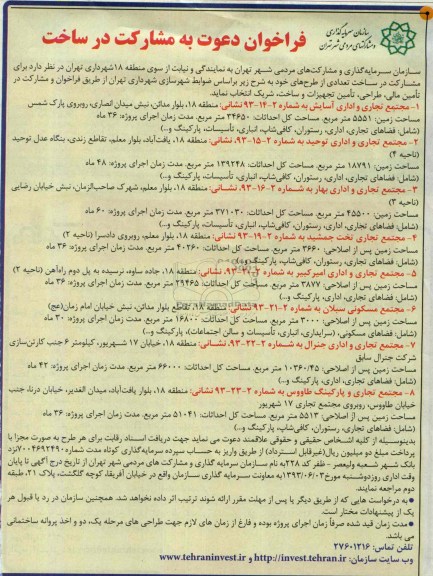 سازمان سرمایه‌گذاری
و مشارکتهای مردمی شهر تهران
فراخوان دعوت به مشارکت در ساخت
سازمان سرمایه‌گذاری و مشارکت‌های مردمی شهر تهران به نمایندگی و نیابت از سوی منطقه ۱۸شهرداری تهران در نظر دارد برای
مشارکت در ساخت تعدادی از طرح‌های خود به شرح زیر براساس ضوابط شهرسازی شهرداری تهران از طریق فراخوان و مشارکت در
تأمین مالی، طراحی، تأمین تجهیزات و ساخت، شریک انتخاب نماید.
۱- مجتمع تجاری و اداری آسایش به شماره ۲-۱۴-۹۳ نشانی: منطقه ۱۸، بلوار مدائن، نبش میدان انصاری، روبروی پارک شمس
مساحت زمین: ۵۵۵۱ متر مربع. مساحت کل احداثات: ۳۴۶۵۰ متر مربع. مدت زمان اجرای پروژه: ۳۶ ماه
(شامل: فضاهای تجاری، اداری، رستوران، کافی‌شاپ، انباری، تأسیسات، پارکینگ و..)
۲- مجتمع تجاری و اداری توحید به شماره ۲-۱۵-۹۳، نشانی: منطقه ۱۸، یافت‌آباد، بلوار معلم، تقاطع زندی، بنگاه عدل توحید
(ناحیه ۴)
مساحت زمین: ۱۸۷۹۱ متر مربع. مساحت کل احداثات: ۱۳۹۲۴۸ متر مربع. مدت زمان اجرای پروژه: ۴۸ ماه
(شامل: فضاهای تجاری، اداری، رستوران، کافی‌شاپ، انباری، تأسیسات، پارکینگ و..)
۳- مجتمع تجاری و اداری بهار به شماره ۲-۱۶-۹۳، نشانی: منطقه ۱۸، بلوار معلم، شهرک صاحب‌الزمان، نبش خیابان رضایی
(ناحیه ۳)
مساحت زمین: ۴۵۵۰۰ متر مربع. مساحت کل احداثات: ۳۷۱۰۳۰ متر مربع. مدت زمان اجرای پروژه: ۶۰ ماه
(شامل: فضاهای تجاری، اداری، رستوران، کافی‌شاپ، انباری، تأسیسات، پارکینگ و..)
۴- مجتمع تجاری تخت جمشید به شماره ۲-۱۹-۹۳ نشانی: منطقه ۱۸، بلوار معلم، روبروی دادسرا (ناحیه ۲)
مساحت زمین پس از اصلاحی: ۳۶۶۰ متر مربع. مساحت کل احداثات: ۴۰۲۶۰ متر مربع. مدت زمان اجرای پروژه: ۳۶ ماه
(شامل: فضاهای تجاری، رستوران، کافی‌شاپ، پارکینگ و..)
۵- مجتمع تجاری و اداری امیرکبیر به شماره ۲-۲۰-۹۳، نشانی: منطقه ۱۸، جاده ساوه، نرسیده به پل دوم راه‌آهن (ناحیه ۲)
مساحت زمین پس از اصلاحی: ۳۸۷۷ متر مربع. مساحت کل احداثات: ۲۹۴۶۵ متر مربع. مدت زمان اجرای پروژه: ۳۶ ماه
(شامل: فضاهای تجاری، اداری، پارکینگ و..)
۶- مجتمع مسکونی سبلان به شماره ۲-۲۱-۹۳ نشانی: منطقه ۱۸، تقاطع بلوار مدائن، نبش خیابان امام زمان(عج)
مساحت زمین پس از اصلاحی: ۳۰۰۰ متر مربع. مساحت کل احداثات: ۱۶۸۰۰ متر مربع. مدت زمان اجرای پروژه: ۳۰ ماه
(شامل: فضاهای مسکونی، (سرایداری، انباری، تأسیسات و سالن اجتماعات)، پارکینگ و..)
۷- مجتمع تجاری و اداری جنرال به شماره ۲-۲۲-۹۳، نشانی: منطقه ۱۸، خیابان ۱۷ شهریور، کیلومتر ۶ جنب کارتن‌سازی
شرکت جنرال سابق
مساحت زمین پس از اصلاحی: ۱۰۳۶۰/۴۵ متر مربع. مساحت کل احداثات: ۶۶۰۰۰ متر مربع. مدت زمان اجرای پروژه: ۴۲ ماه
(شامل: فضاهای تجاری، اداری، پارکینگ و..)
۸- مجتمع تجاری و پارکینگ طاووس به شماره ۲-۲۳-۹۳ نشانی: منطقه ۱۸، بلوار یافت‌آباد، میدان الغدیر، خیابان درنا، جنب
خیابان طاووس، روبروی مجتمع تجاری ۱۷ شهریور
مساحت زمین پس از اصلاحی: ۵۵۱۳ متر مربع. مساحت کل احداثات: ۵۱۰۴۱ متر مربع. مدت زمان اجرای پروژه: ۳۶ ماه
(شامل: فضاهای تجاری، رستوران، کافی‌شاپ، انباری، تأسیسات، پارکینگ و..)
بدینوسیله از کلیه اشخاص حقیقی و حقوقی علاقمند دعوت می نماید جهت دریافت اسناد رقابت برای هر طرح به صورت مجزا با
پرداخت مبلغ دو میلیون ریال(غیرقابل استرداد) از طریق واریز به حساب سپرده سرمایه‌گذاری کوتاه مدت شماره ۷۰۰۴۶۹۲۴۹۰نزد
بانک شهر شعبه ولیعصر - ظفر کد ۲۲۸به نام سازمان سرمایه گذاری و مشارکت های مردمی شهر تهران از تاریخ درج آگهی تا پایان
وقت اداری روزدوشنبه مورخ ۱۳۹۳/۰۶/۰۳به معاونت سرمایه گذاری سازمان واقع در خیابان آفریقا، کوچه گلگشت، پلاک ۲۱، طبقه
دوم مراجعه نمایند.
به درخواست هایی که از طریق دیگر یا پس از مهلت مقرر ارائه شوند ترتیب اثر داده نخواهد شد. همچنین سازمان در رد یا قبول هر
یک از پیشنهادات مختار است.
مدت زمان قید شده صرفاً زمان اجرای پروژه بوده و فارغ از زمان های لازم جهت طراحی های مرحله یک، دو و اخذ پروانه ساختمانی
می باشد.
تلفن تماس: ۲۷۶۰۱۲۱۶
وب سایت سازمان: http://invest.tehran.ir و www.tehraninvest.ir